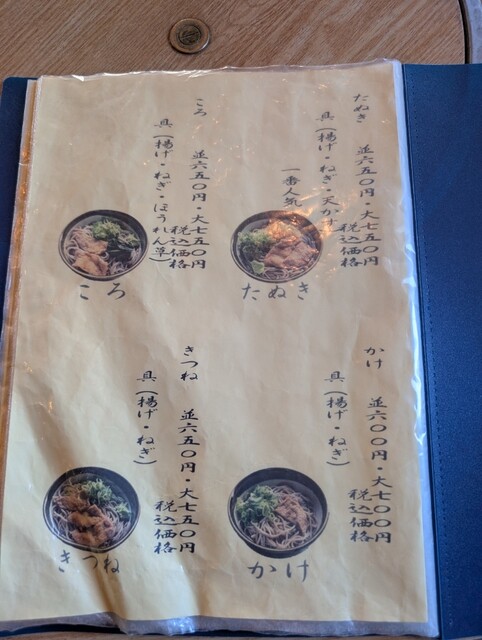 たぬき
並六五〇円・大七五〇円
税込価格
具(揚げ・ねぎ・天かす)
一番人気
たぬき
ころ
並六五〇円・大七五〇円
税込価格
具(揚げ・ねぎ・ほうれん草)
ころ
かけ
並六〇〇円・大七〇〇円
税込価格
具(揚げ・ねぎ)
かけ
きつね
並六五〇円・大七五〇円
税込価格
具(揚げ・ねぎ)
きつね